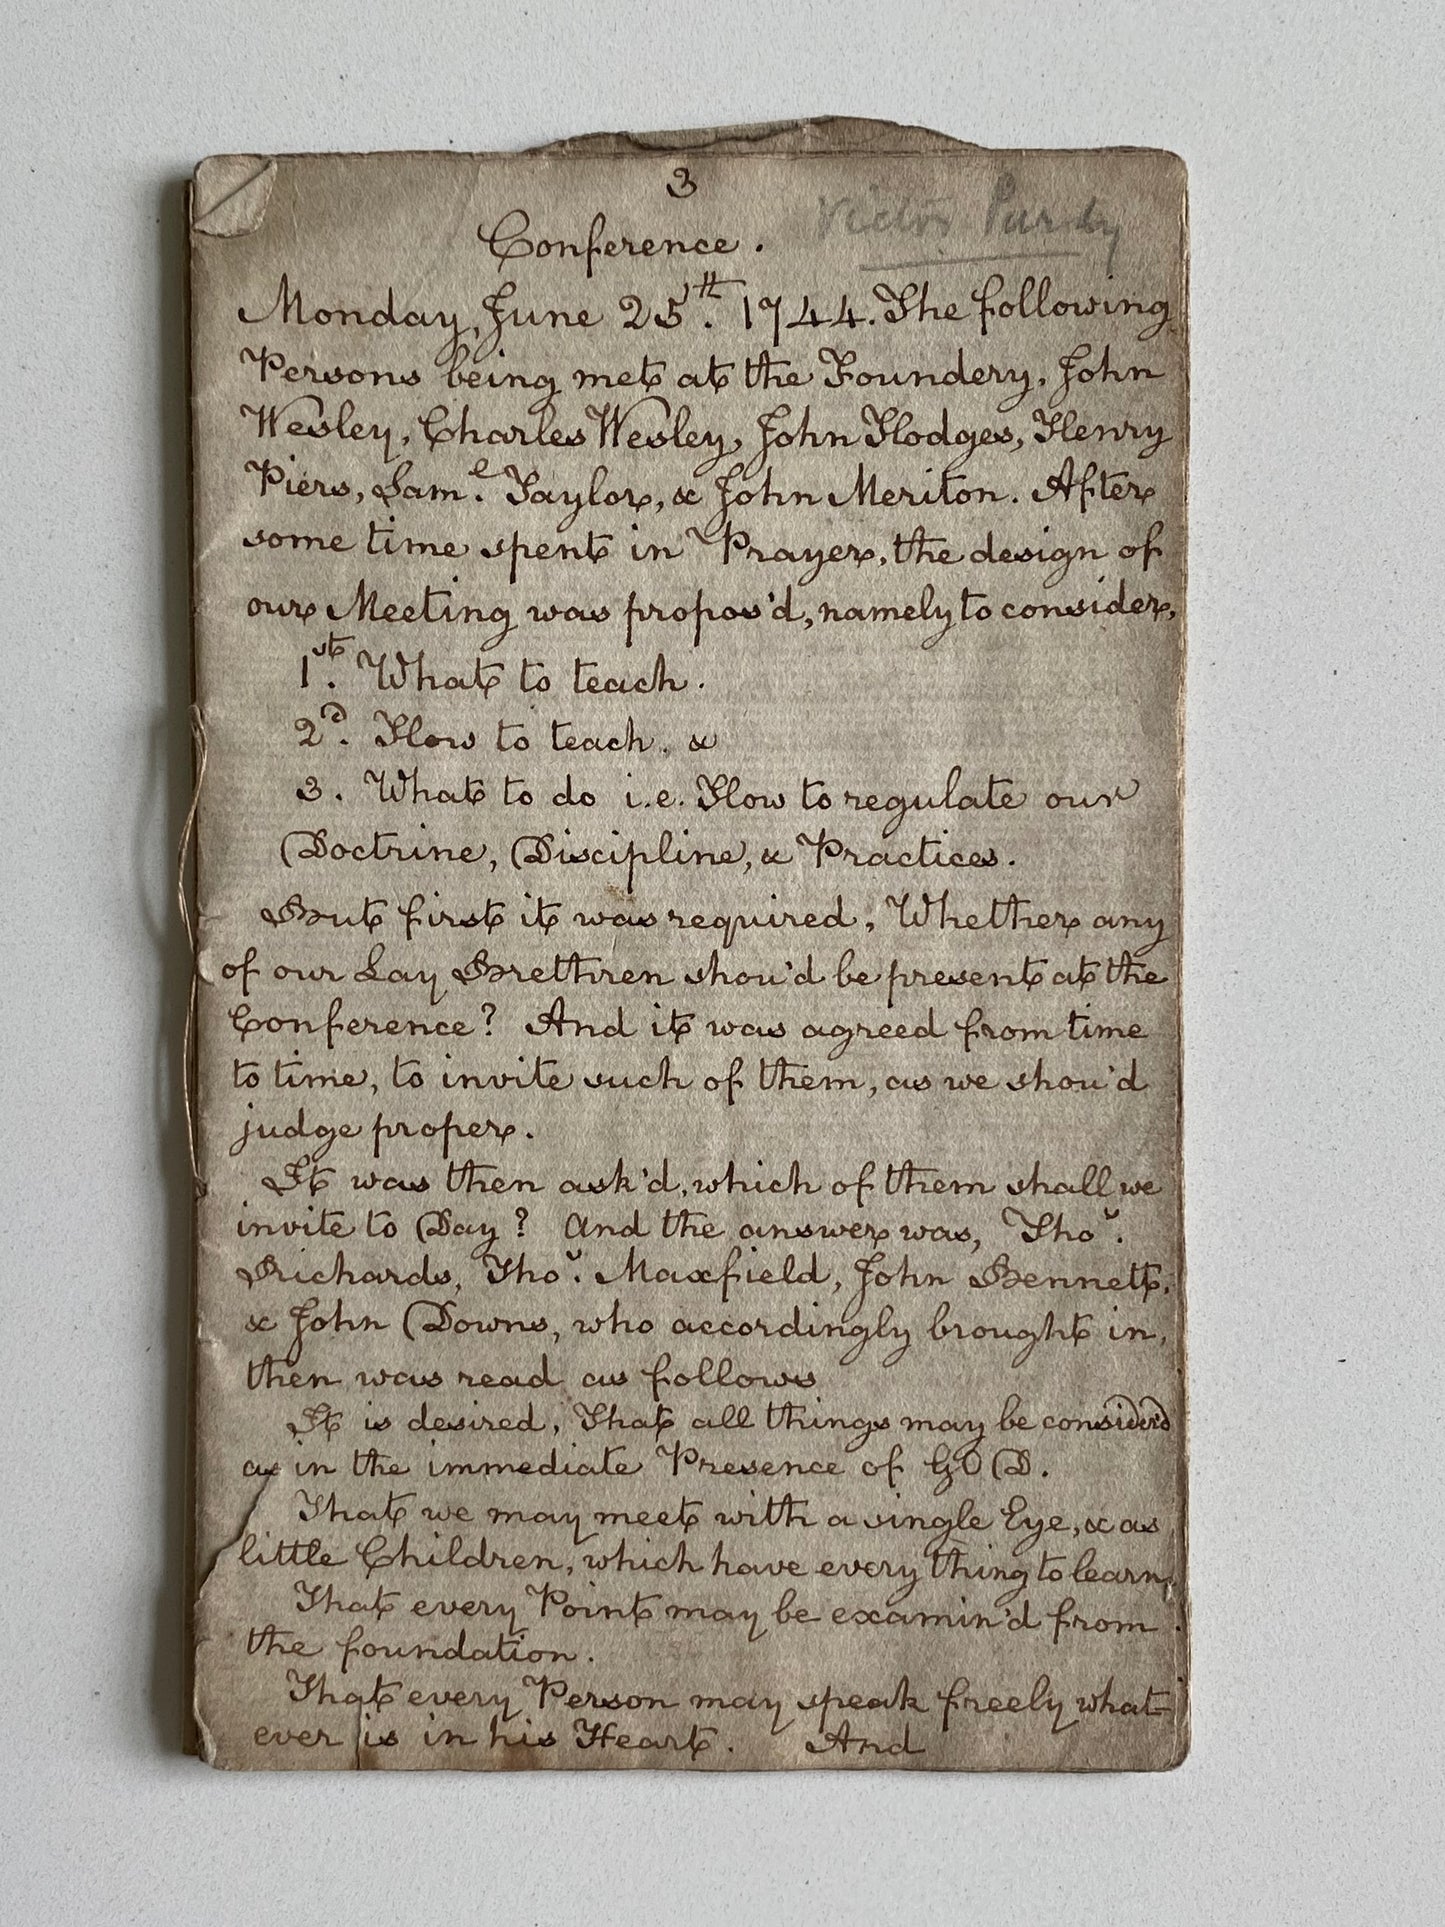 3
Victor Purdy
Conference.
Monday, June 25th. 1744. The following
Persons being met at the Foundery, John
Wesley, Charles Wesley, John Hodges, Henry
Piers, Sam.l Taylor, & John Meriton. After
some time spent in Prayer, the design of
our Meeting was propos'd, namely to consider,
1st. What to teach.
2d. How to teach. &
3. What to do i.e. How to regulate our
Doctrine, Discipline, & Practices.
But first it was required, Whether any
of our Lay Brethren shou'd be present at the
Conference? And it was agreed from time
to time, to invite such of them, as we shou'd
judge proper.
It was then ask'd, which of them shall we
invite to Day? And the answer was, Thos.
Richards, Thos. Maxfield, John Bennett,
& John Downs, who accordingly brought in,
then was read as follows
It is desired, That all things may be consider'd
as in the immediate Presence of GOD.
That we may meet with a single Eye, & as
little Children, which have every thing to learn,
That every Point may be examin'd from
the foundation.
That every Person may speak freely what=
ever is in his Heart. And